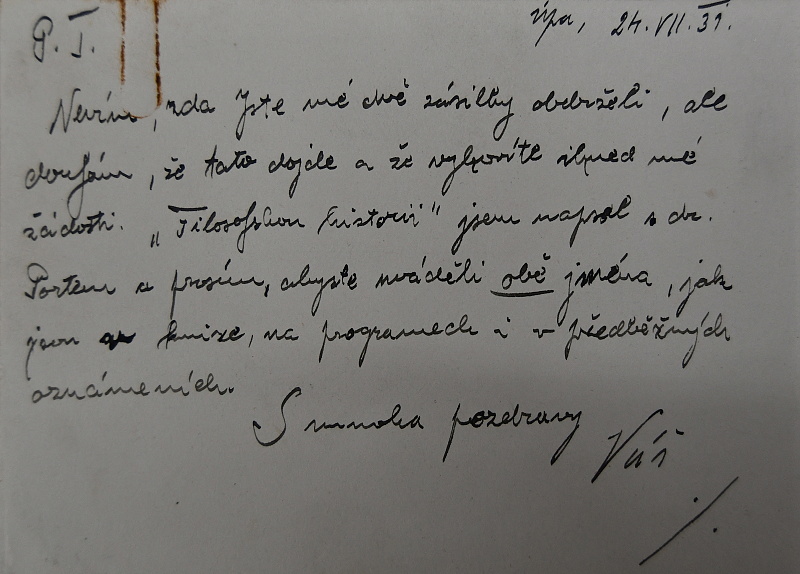 P. T.
Úpa, 24. VII. 31.
Nevím, zda Jste mé dvě zásilky obdrželi, ale
doufám, že tato dojde a že vyhovíte ihned mé
žádosti. „Filosofskou historii" jsem napsal s dr.
Portem a prosím, abyste uváděli obě jména, jak
jsou v knize, na programech i v předběžných
oznámeních.
S mnoha pozdravy
Váš
./.